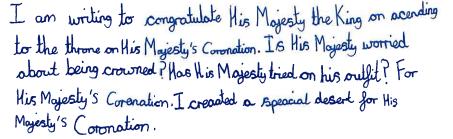 I am writing to congratulate His Majesty the King on acending
to the throne on His Majesty's Coronation. Is His Majesty worried
about being crowned? Has His Majesty tried on his outfit? For
His Majesty's Coronation. I creaated a speacial desert for His
Majesty's Coronation.